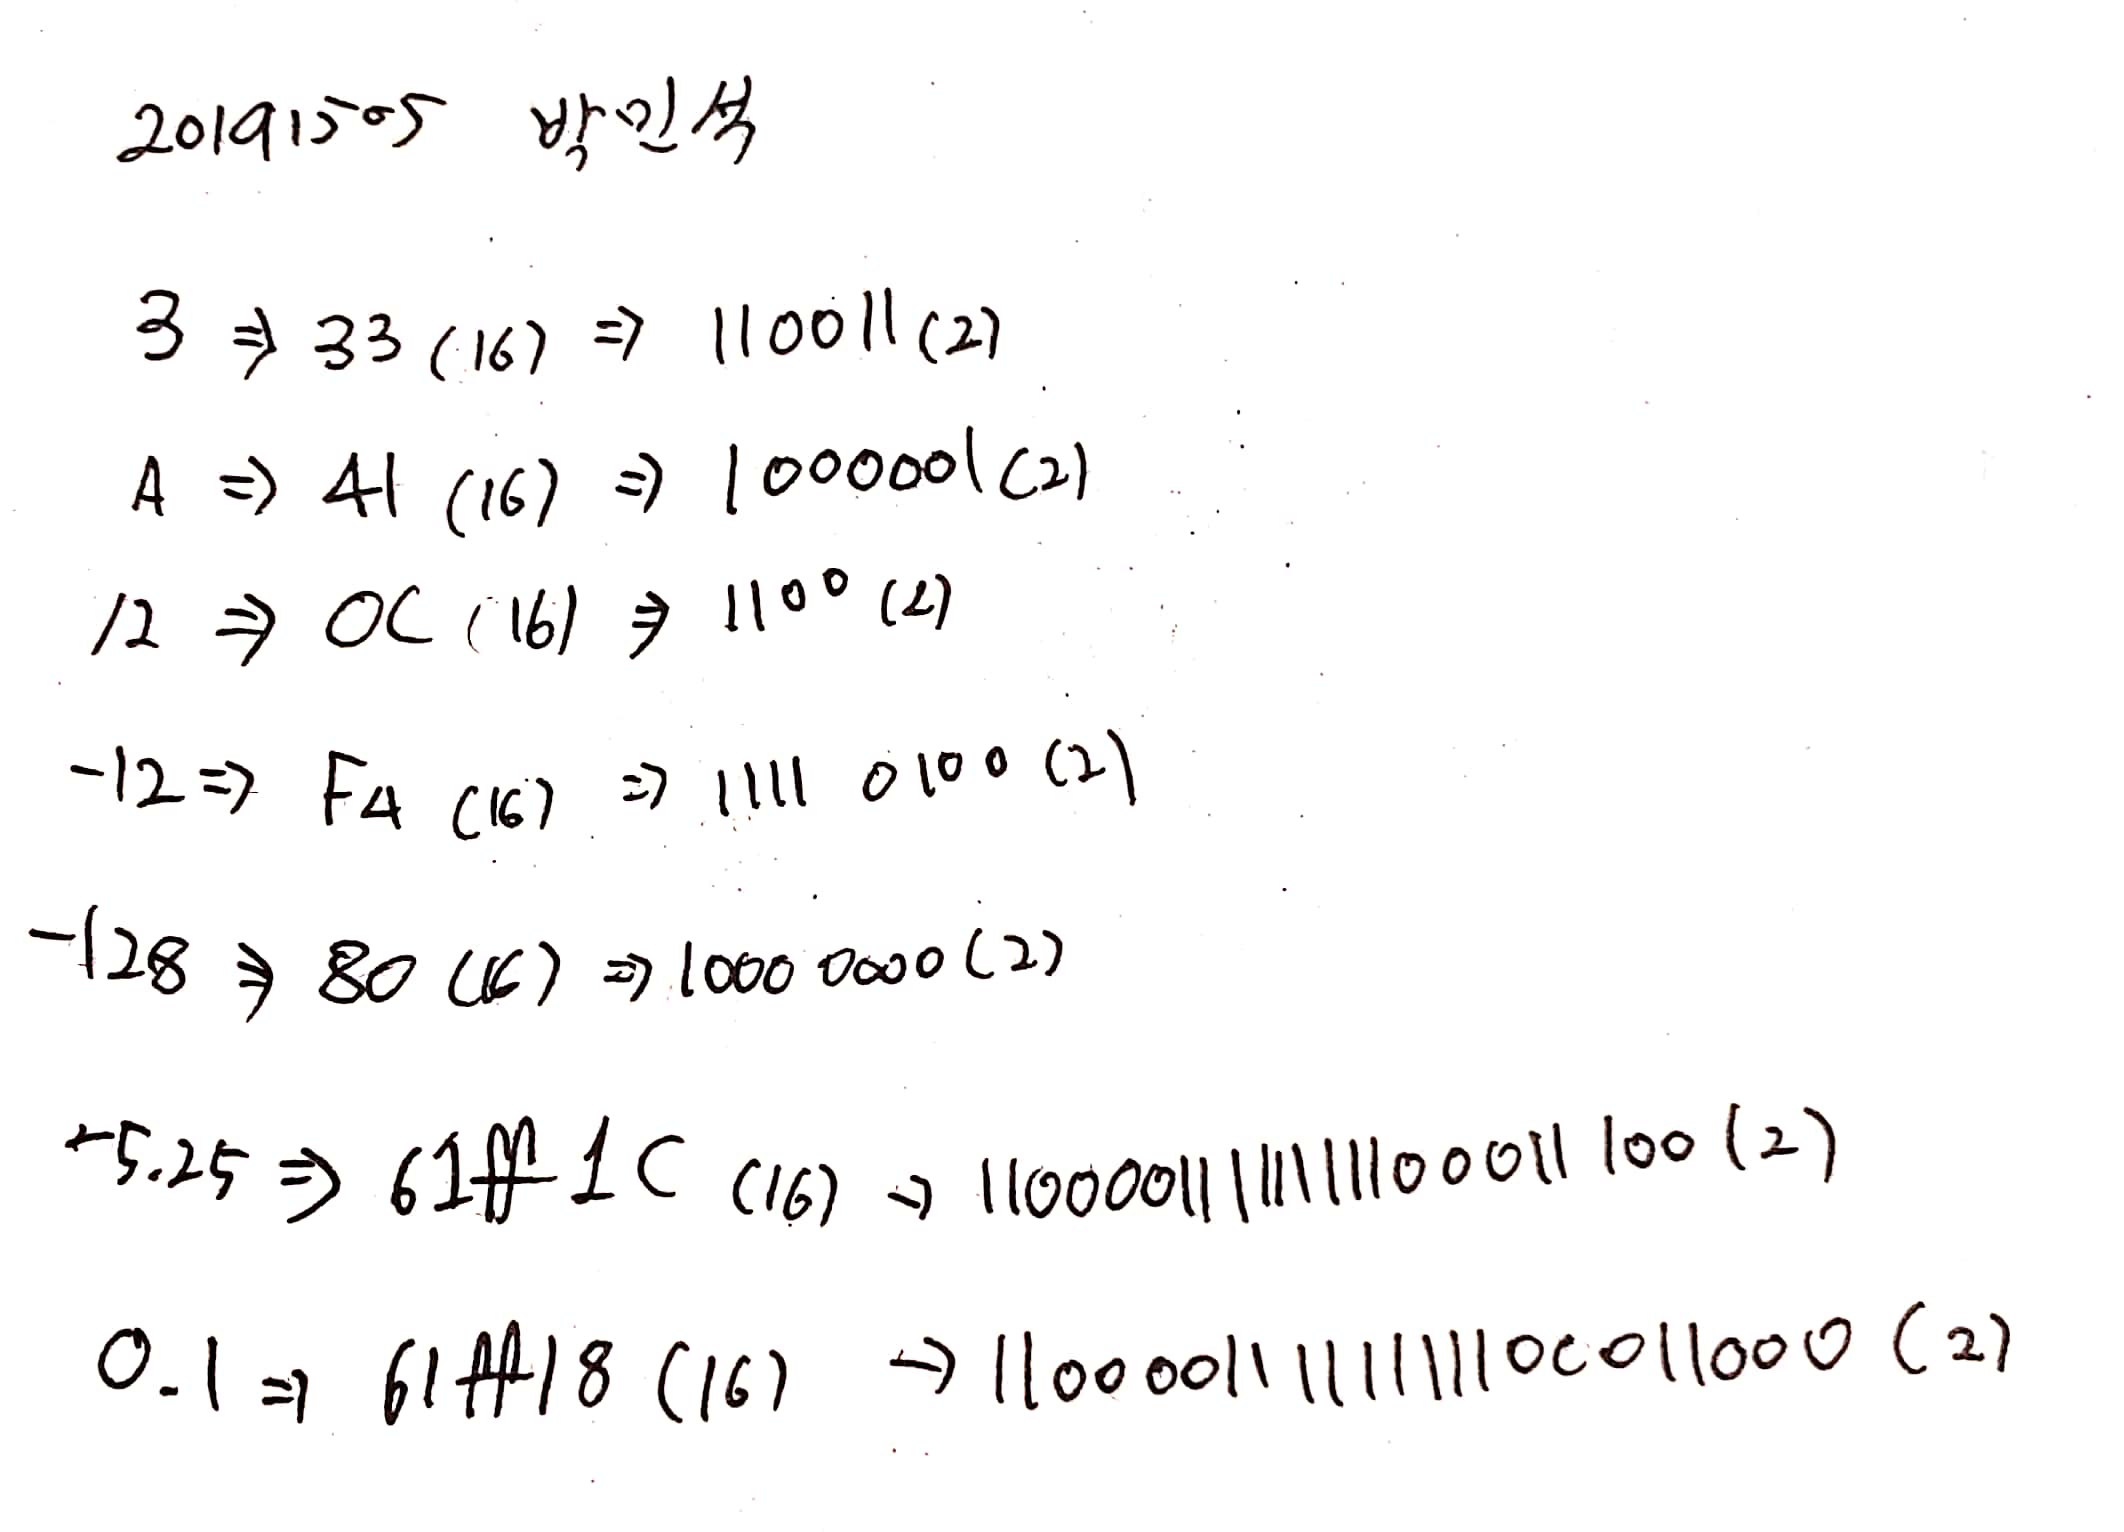 201915505 박민석
3 ⇒ 33 (16) ⇒ 110011 (2)
A ⇒ 41 (16) ⇒ 1000001 (2)
12 ⇒ 0C (16) ⇒ 1100 (2)
-12 ⇒ F4 (16) ⇒ 1111 0100 (2)
-128 ⇒ 80 (16) ⇒ 1000 0000 (2)
-5.25 ⇒ 61ff1C (16) → 11000011111111100011100 (2)
0.1 ⇒ 61ff18 (16) → 11000011111111100011000 (2)